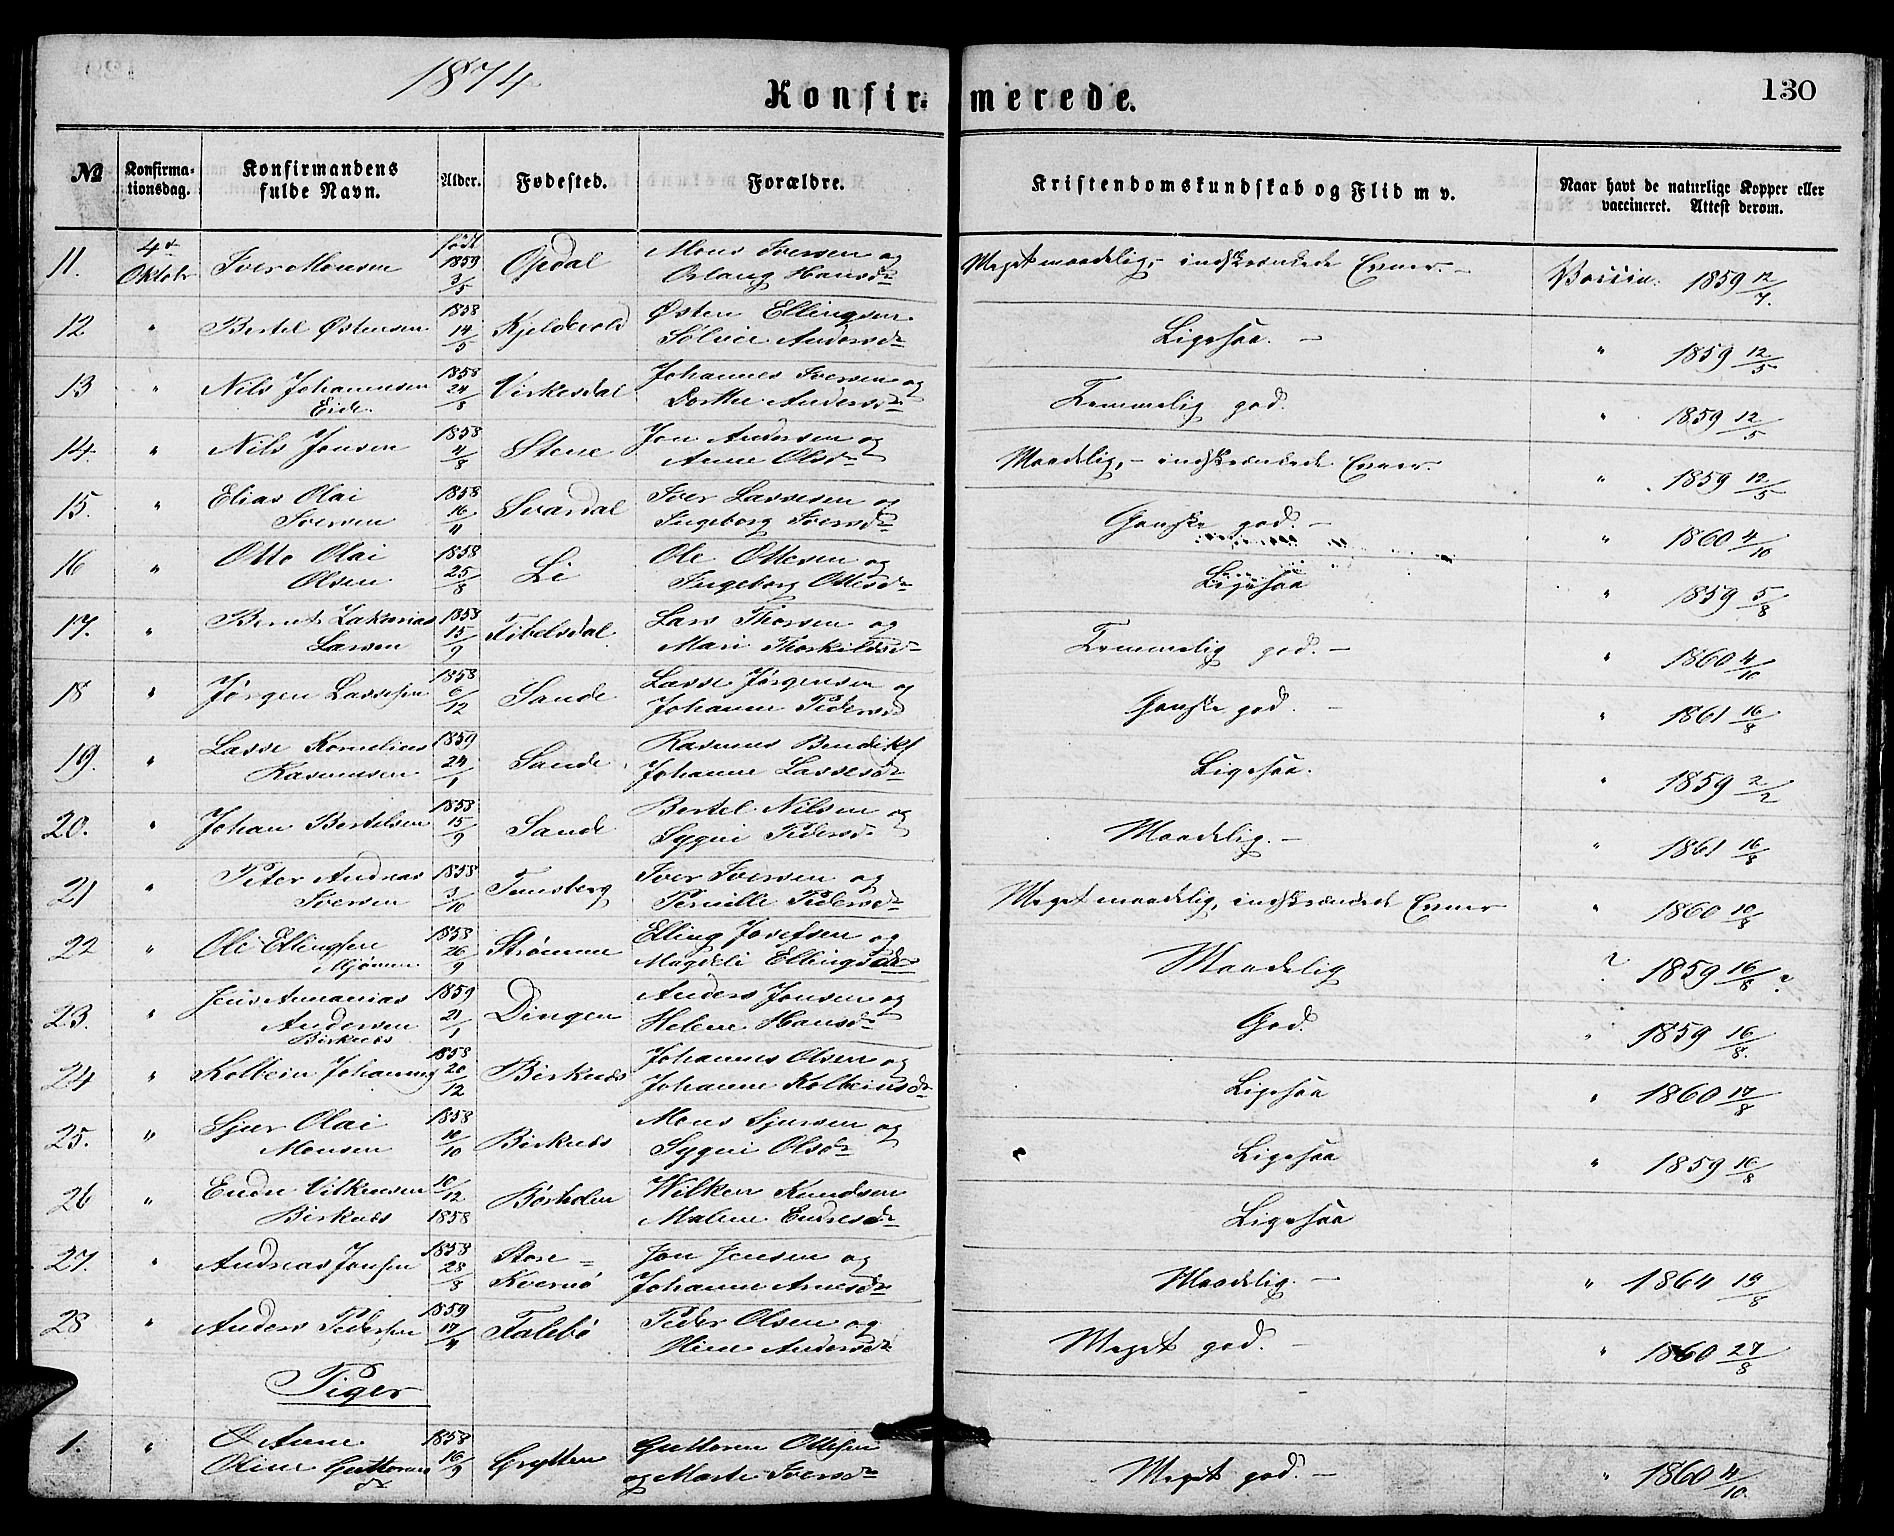 1874
Konfirmerede.
130
No
Konfirmationsdag.
Konfirmandens fulde Navn.
Alder.
Fødested.
Forældre.
Kristendomskundskab og Flid m v.
Naar havt de naturlige Kopper eller vaccineret. Attest derom.
11. 4de Oktobr Iver Monsen født 1859 3/5 Opdal Mons Iversen og Hansdr Meget maadelig, - indskrænkede Evner. - Vaccin. 1859 12/7.
12. " Bertel Østensen 1858 14/5 Østen Ellingsen Sølvie Andersdr Ligesaa. - " 1859 12/5
13 " Nils Johannesen Eide. 1858 24/8 Virkesdal Johannes Iversen og Dorthe Andersdr Temmelig god. " 1859 12/5
14. " Nils Jonsen 1858 4/8 Stene Jon Andersen og Anne Olsdr Maadelig, - indskrænkede Evner. " 1859 12/5
15. " Elias Olai Iversen 1858 16/11 Svardal Iver Lassesen og Ingeborg Iversdr Ganske god. - " 1860 4/10
16 " Otto Olai Olsen 1858 25/8 Li Ole Ottesen og Ingeborg Ottesdr Ligesaa " 1859 5/8
17. " Bernt Zakarias Larsen 1858 15/9 Lars Thorsen og Mari Thorkildsdr Temmelig god. - " 1860 4/10
18 " Jørgen Lassesen 1858 6/12 Sande Lasse Jørgensen og Johanne Pedersd Ganske god. - " 1861 16/8
19. " Lasse Kornelius Rasmusen 1859 24/1 Sande Rasmus Bendiks Johanne Lassesdr Ligesaa. " 1859 2/2
20. " Johan Bertelsen 1858 15/9 Sande Bertel Nilsen og Sygni Pedersdr Maadelig. - " 1861 16/8
21 " Peter Andreas Iversen 1858 3/10 Tunsberg Iver Iversen og Pernille Pedersdr Meget maadelig, indskrænkede Evner " 1860 10/8
22 " Ole Ellingsen Mjømen 1858 26/9 Strømme Elling Josefsen og Magdeli Ellingsdr Maadelig ? 1859 16/8 ?
23. " Jens Annanias Andersen Birknes 1859 21/1 Dingen Anders Jonsen og Helene Hansdr God. " 1859 16/8.
24 " Kolbein Johannes 1858 20/12 Birknes Johannes Olsen og Johanne Kolbeinsdr Ligesaa " 1860 17/8
25. " Sjur Olai Monsen 1858 11/10 Birknes Mons Sjursen og Sygni Olsdr Ligesaa " 1859 16/8
26 " Endre Vilkensen Birknes 10/12 1858 Børholen Wilken Knudsen Malene Endresdr Ligesaa
27. " Andreas Jonsen 1858 28/8 Store= Kvernø Jon Jensen og Johanne Arnesdr Maadelig. - " 1864 19/8
28 " Anders Pedersen 1859 17/4 Falebø Peder Olsen og Oline Andersdr Meget god. - " 1860 27/8
Piger
1. " Anne Oline Guttormsdr 1858 16/9 Grytten Guttorm Ottesen og Marte Iversdr Meget god. - " 1860 4/10.